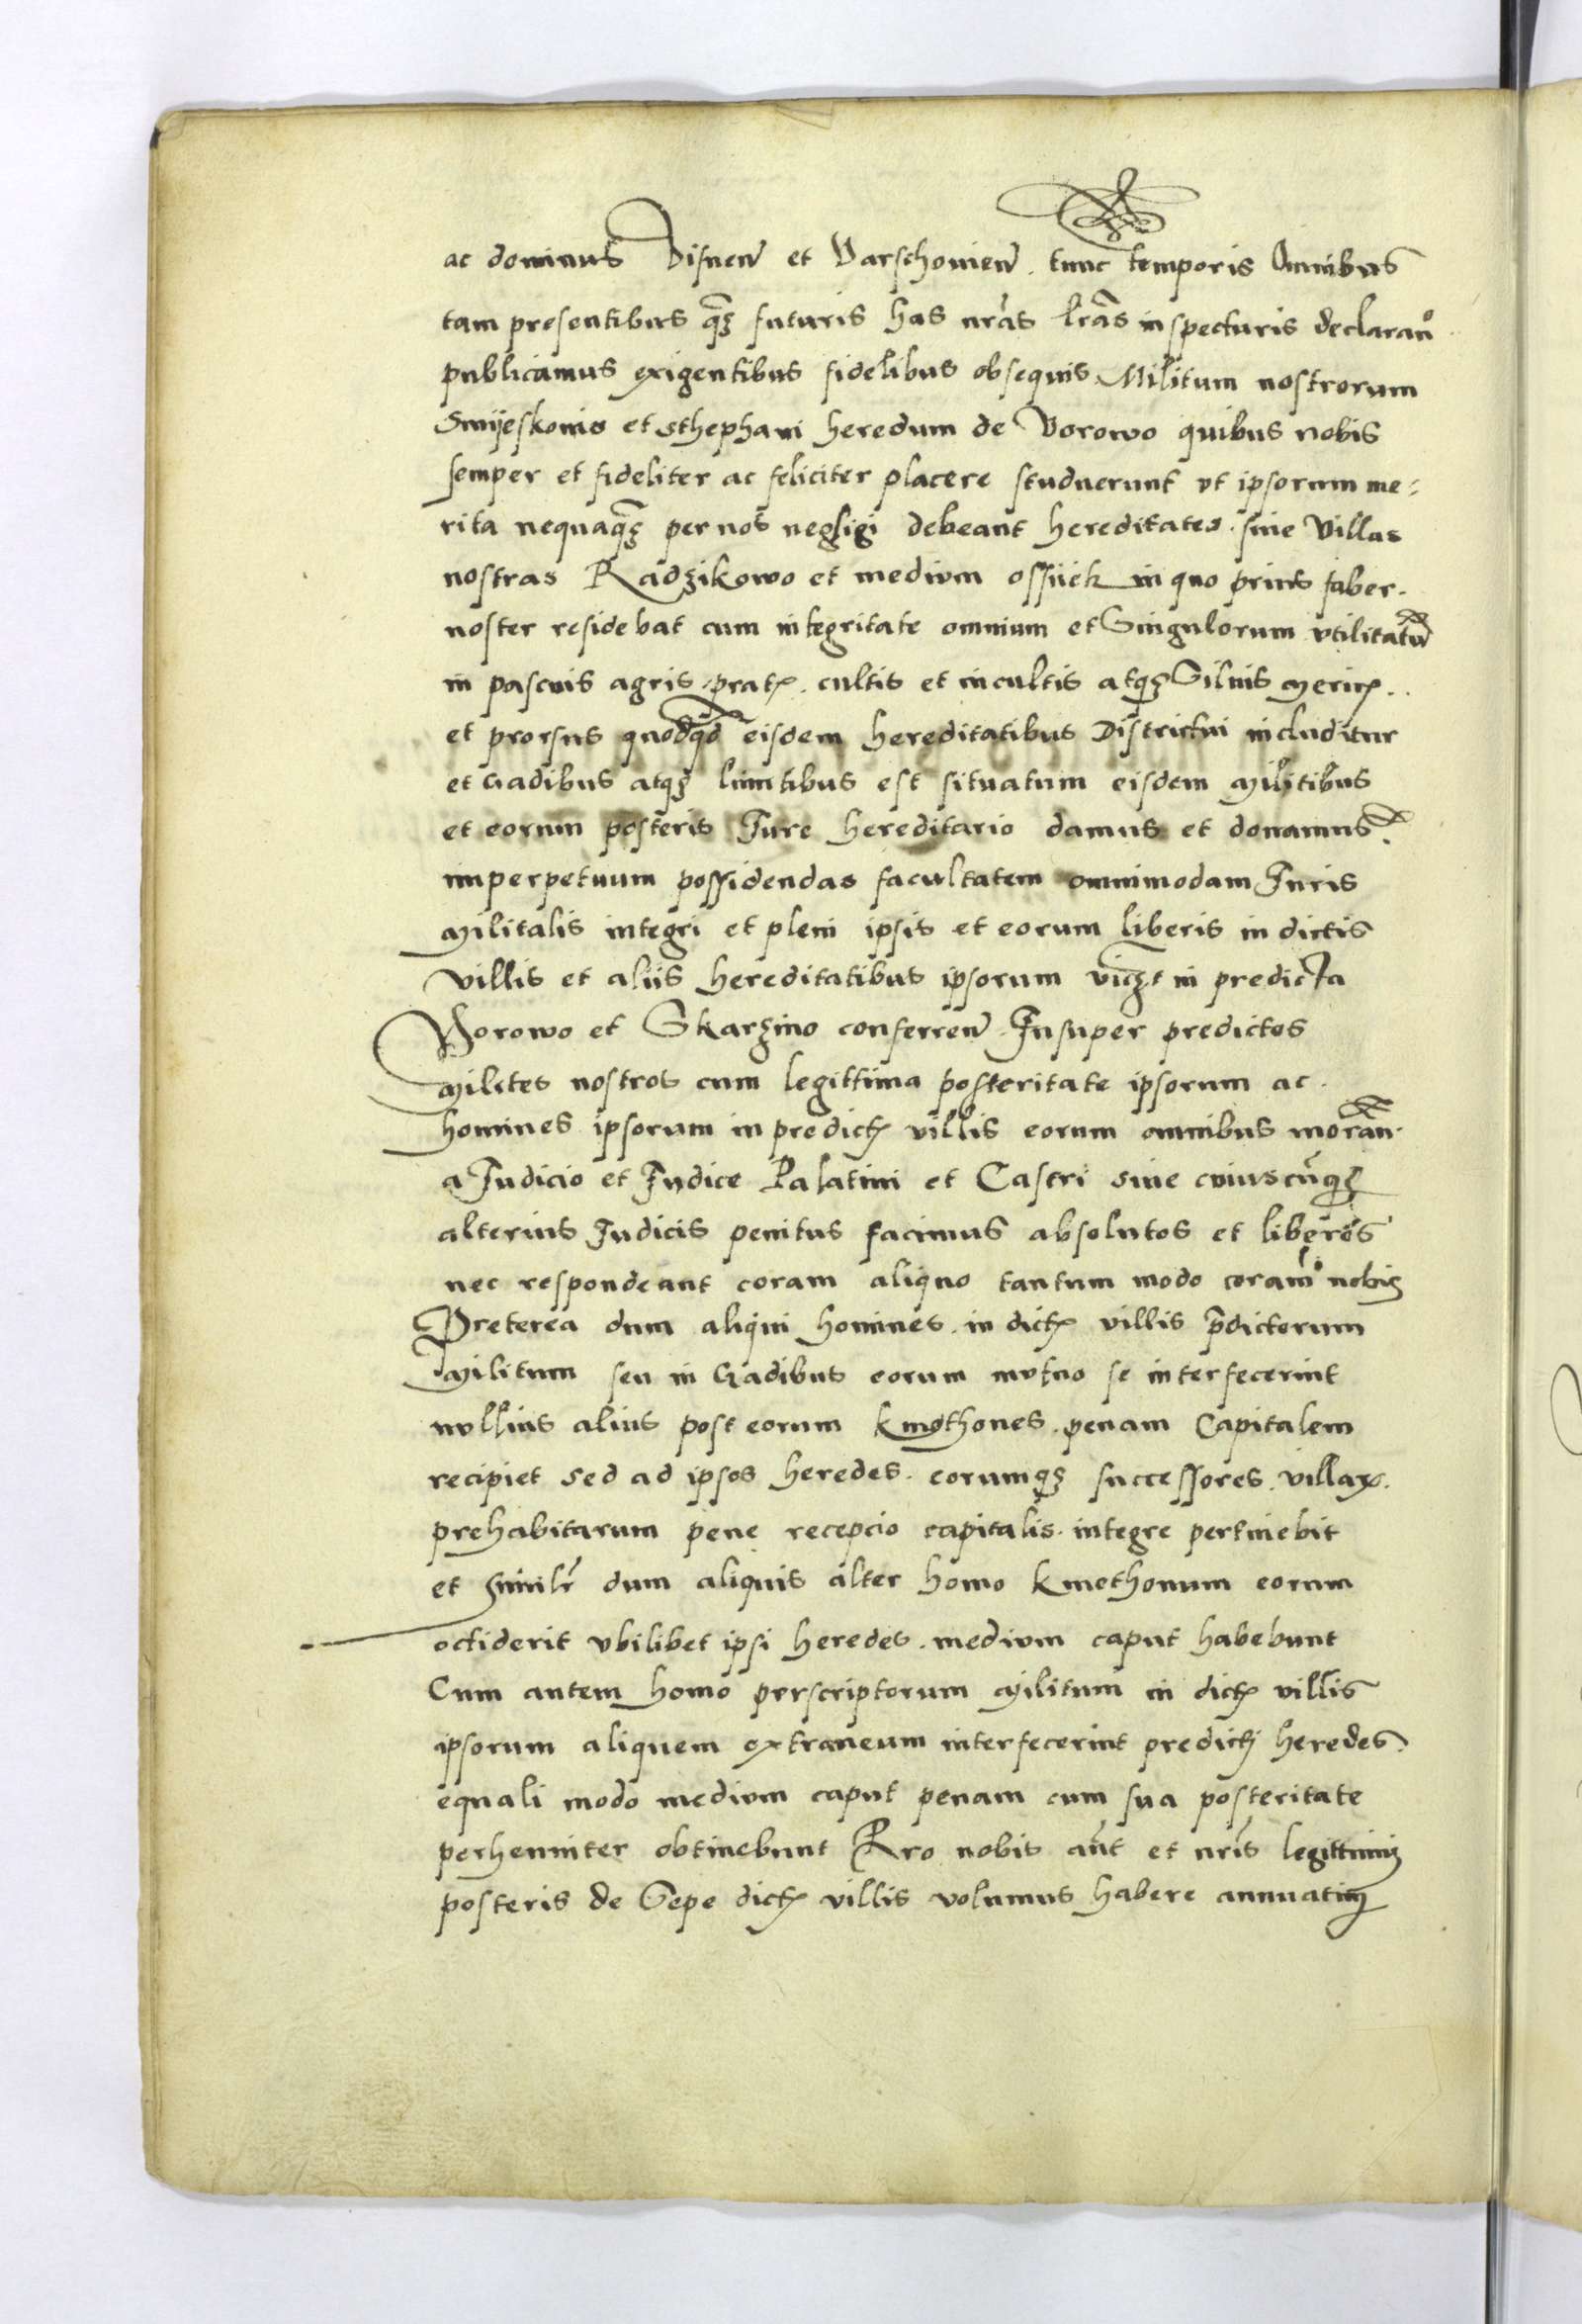 ac dominus Visnen et Varschonien . tunc temporis Omnibus
tam presentibus q̃ꝫ futuris has nr̃as lr̃as inspecturis declaran
publicamus exigentibus fidelibus obsequis Militum nostrorum
et Sthephani heredum de Borowo quibus nobis
semper et fideliter ac feliciter placere studuerunt vt ipsorum me=
rita nequaq̃ꝫ per nos negligi debeant hereditates . siue Villas
nostras Radzikowo et medium ossiiek in quo prius faber .
noster residebat cum integritate omnium et Singulorum vtilitatu
in pascuis agris pratꝭ . cultis et incultis atqꝫ Siluis mericꝭ . .
et prorsus quodqd eisdem hereditatibus Districtui includitur
et Gadibus atqꝫ limitibus est situatum eisdem Militibus
et eorum posteris Jure hereditario damus et donamus .
imperpetuum possidendas facultatem omnimodam Juris
Militalis integri et pleni ipsis et eorum liberis in dictis
villis et aliis hereditatibus ipsorum vicꝫt in predicta
Borowo et Skarzino conferren . Insuper predictos
Milites nostros cum legittima posteritate ipsorum ac .
homines ipsorum in predictꝭ villis eorum omnibus moran .
a Judicio et Judice Palatini et Castri siue cuiuscũqꝫ
alterius Judicis penitus facimus absolutos et liberos
nec respondeant coram aliquo tantum modo coram nobis
Preterea dum aliqui homines . in dictꝭ villis p̃dictorum
Militum seu in Gadibus eorum mutuo se interfecerint
nullius alius post eorum kmethones . penam Capitalem
recipiet sed ad ipsos heredes . eorumqꝫ successores . villaꝝ .
prehabitarum pene recepcio capitalis . integre pertinebit
et similr̃ dum aliquis alter homo kmethonum eorum
occiderit vbilibet ipsi heredes . medium caput habebunt
Cum autem homo prescriptorum Militum in dictꝭ villis
ipsorum aliquem extraneum interfecerint predicti heredes .
equali modo medium caput penam cum sua posteritate
perhenniter obtinebunt Pro nobis aũt et nr̃is legittimis
posteris de Sepe dictꝭ villis volumus habere annuatim